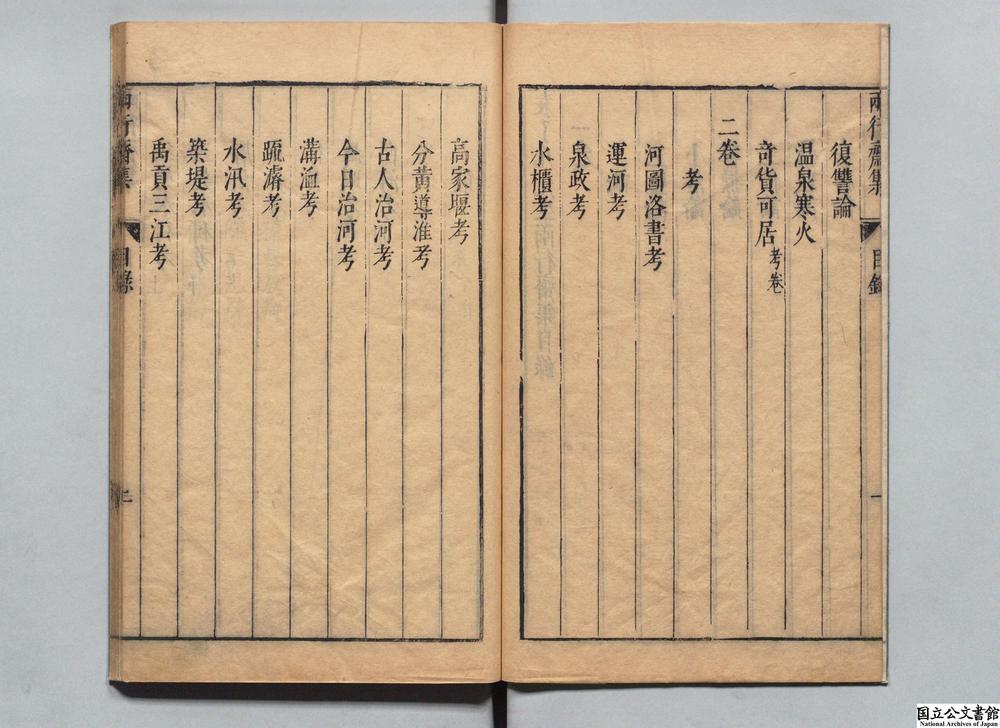 兩行齋集
目錄
一
復讐論
温泉寒火
奇貨可居考卷
二卷
考
河圖洛書考
運河考
泉政考
水櫃考
高家堰考
分黃導淮考
古人治河考
今日治河考
溝洫考
疏濬考
水汛考
築堤考
禹貢三江考
兩行齋集
目錄
二
国立公文書館
National Archives of Japan